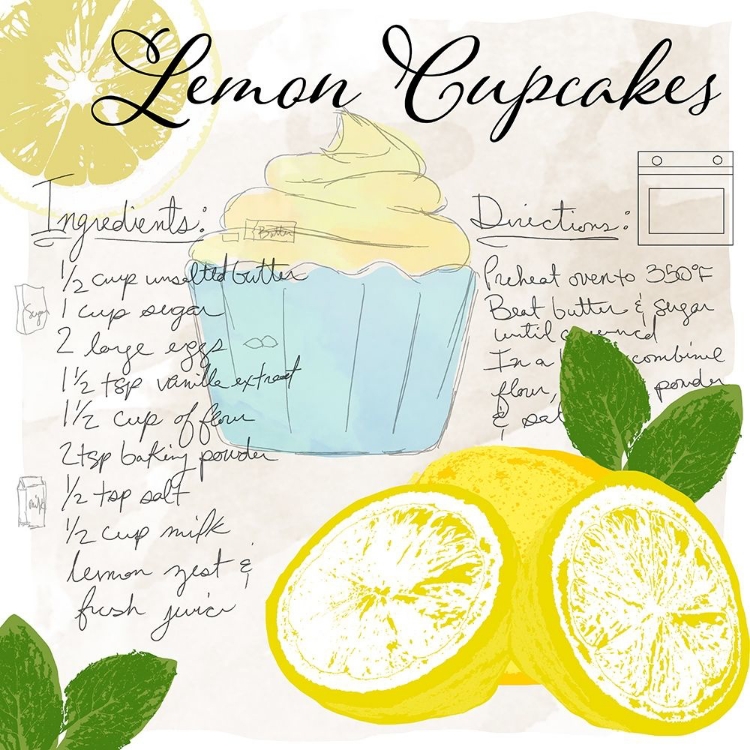 Lemon Cupcakes
Ingredients:
1/2 cup unsalted butter
1 cup sugar
2 large eggs
1 1/2 tsp vanilla extract
1 1/2 cup of flour
2 tsp baking powder
1/2 tsp salt
1/2 cup milk
lemon zest &
fresh juice
Butter
Sugar
milk
Directions:
Preheat oven to 350°F
Beat butter & sugar
until
In a combine
flour, powder
&